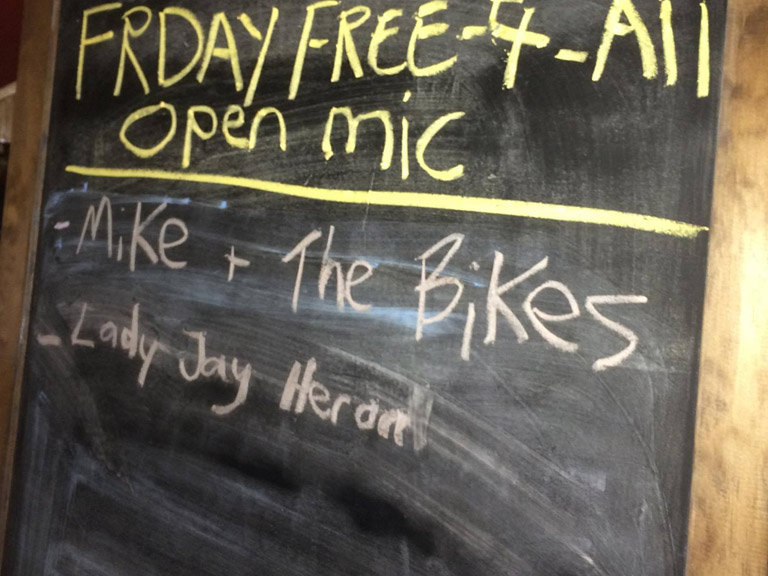 FRDAY FREE-4-All
open mic
- Mike + The Bikes
- Lady Jay Heron